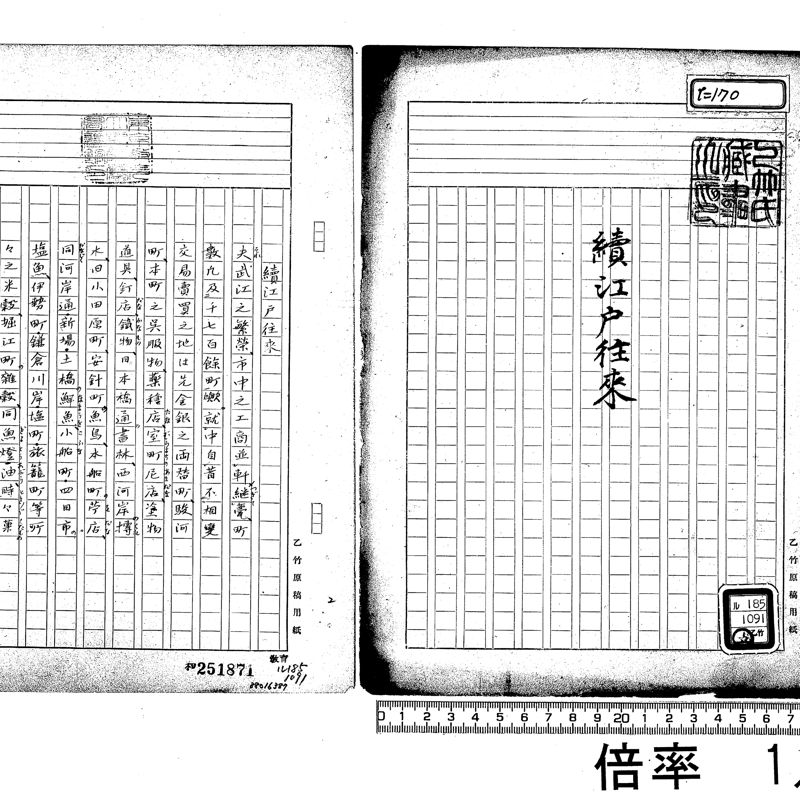 た=170
乙竹氏
藏書
續江戸往來
乙竹原稿用紙
ル 185
1091
乙竹
續江戸往來
夫武江之繁榮市中之工商並軒継甍町
數凡及二千七百餘町歟就中自昔不相變
交易賣買之地は先金銀之両替町駿河
町本町之呉服物藥種店室町尼店塗物
道具釘店鐵物日本橋通書林西河岸摶
水旧小田原町安針町魚鳥水船町苧店
同河岸通新場土橋鮮魚小船町四日市
塩魚伊勢町鎌倉川岸塩町旅籠町等所
々之米穀堀江町雑穀同魚燈油時々菓
乙竹原稿用紙
2
和251871
教育
ル185
1091
88016387
0 1 2 3 4 5 6 7 8 9 20 1 2 3 4 5 6 7
倍率 1